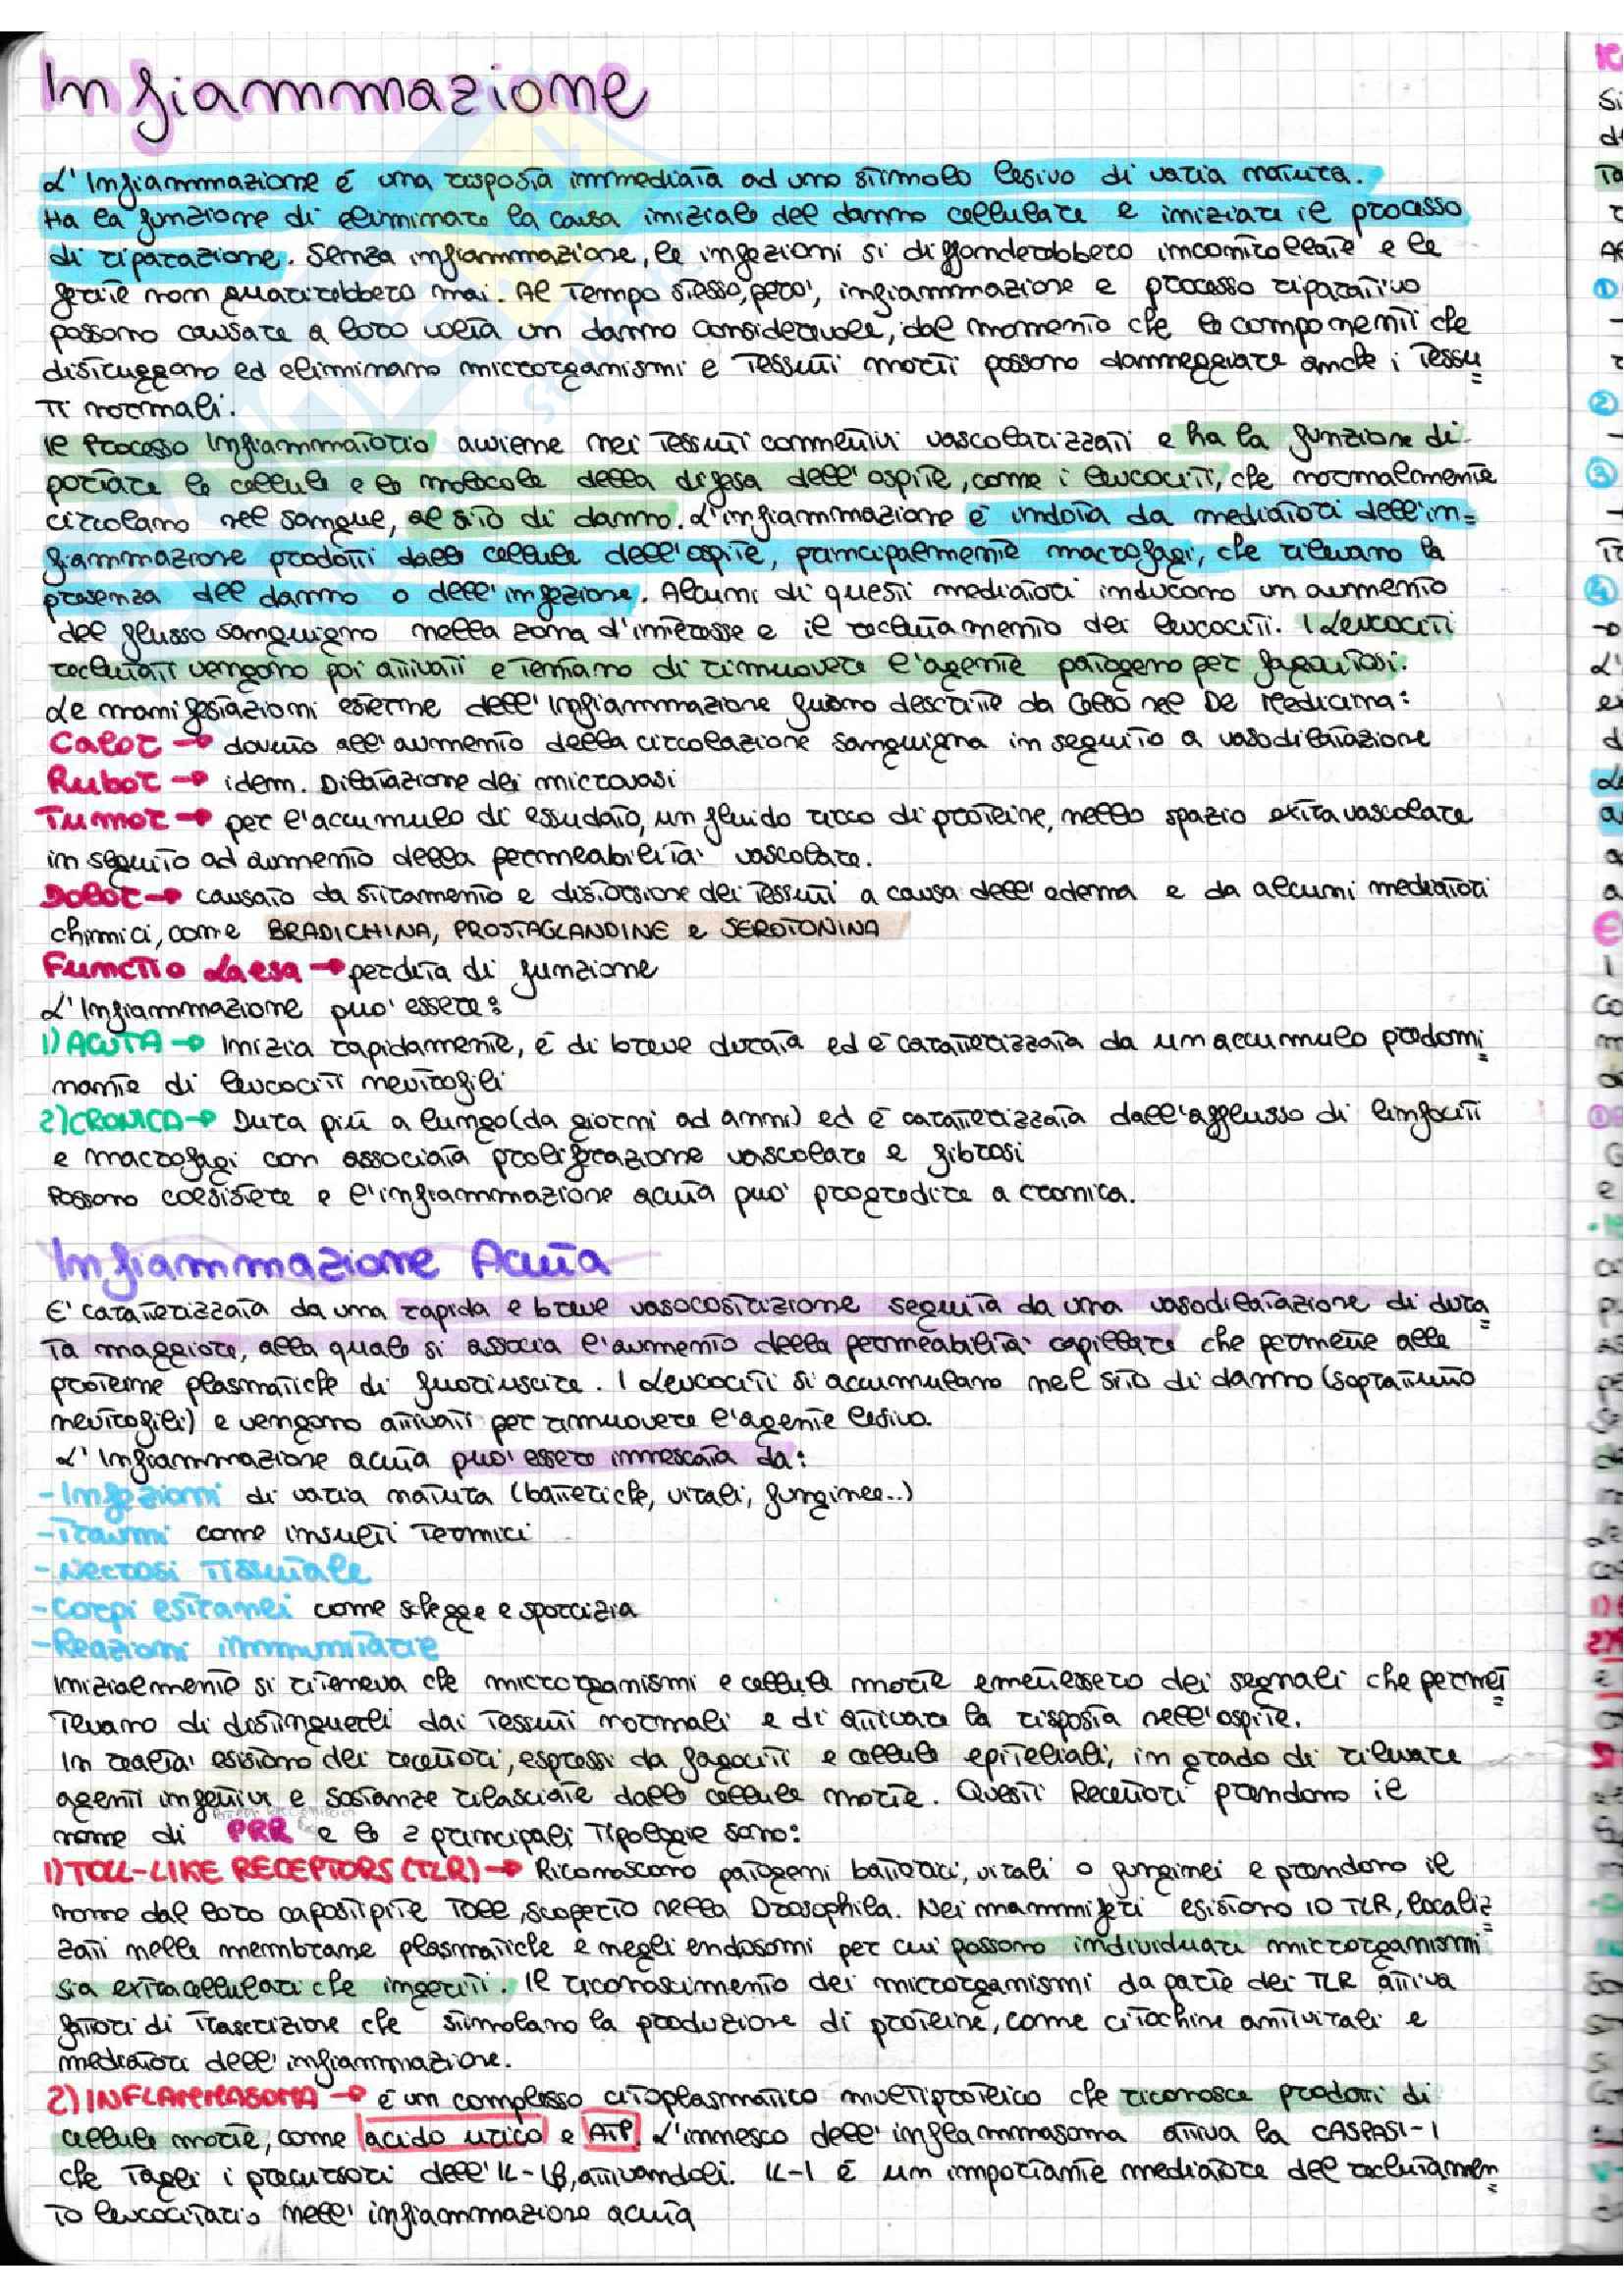 Infiammazione
L'Infiammazione è una risposta immediata ad uno stimolo lesivo di varia natura.
Ha la funzione di eliminare la causa iniziale del danno cellulare e iniziare il processo
di riparazione. Senza infiammazione, le infezioni si diffonderebbero incontrollate e le
ferite non guarirebbero mai. Al tempo stesso, pero', infiammazione e processo riparativo
possono causare a loro volta un danno considerevole, dal momento che le componenti che
distruggono ed eliminano microrganismi e tessuti morti possono danneggiare anche i tessu
ti normali.
Il Processo Infiammatorio avviene nei tessuti connettivi vascolarizzati e ha la funzione di
portare le cellule e le molecole della difesa dell'ospite, come i leucociti, che normalmente
circolano nel sangue, al sito di danno. L'infiammazione è indotta da mediatori dell'in=
fiammazione prodotti dalle cellule dell'ospite, principalmente macrofagi, che rilevano la
presenza del danno o dell'infezione. Alcuni di questi mediatori inducono un aumento
del flusso sanguigno nella zona d'interesse e il reclutamento dei leucociti. I Leucociti
reclutati vengono poi attivati e tentano di rimuovere l'agente patogeno per fagocitosi.
Le manifestazioni esterne dell'Infiammazione furono descritte da Celso nel De Medicina:
Calor → dovuto all'aumento della circolazione sanguigna in seguito a vasodilatazione
Rubor → idem. Dilatazione dei microvasi
Tumor → per l'accumulo di essudato, un fluido ricco di proteine, nello spazio extravascolare
in seguito ad aumento della permeabilita' vascolare.
Dolor → causato da stiramento e distorsione dei tessuti a causa dell'edema e da alcuni mediatori
chimici, come BRADICHINA, PROSTAGLANDINE e SEROTONINA
Functio Laesa → perdita di funzione
L'Infiammazione puo' essere:
1) ACUTA → Inizia rapidamente, è di breve durata ed è caratterizzata da un accumulo predomi
nante di leucociti neutrofili
2) CRONICA → Dura più a lungo (da giorni ad anni) ed è caratterizzata dall'afflusso di linfociti
e macrofagi con associata proliferazione vascolare e fibrosi
Possono coesistere e l'infiammazione acuta puo' progredire a cronica.
Infiammazione Acuta
E' caratterizzata da una rapida e breve vasocostrizione seguita da una vasodilatazione di dura
ta maggiore, alla quale si associa l'aumento della permeabilita' capillare che permette alle
proteine plasmatiche di fuoriuscire. I Leucociti si accumulano nel sito di danno (sopratutto
neutrofili) e vengono attivati per rimuovere l'agente lesivo.
L'Infiammazione acuta puo' essere innescata da:
- Infezioni di varia natura (batteriche, virali, funginee..)
- Traumi come insulti termici
- Necrosi Tissutale
- Corpi estranei come schegge e sporcizia
- Reazioni immunitarie
Inizialmente si riteneva che microrganismi e cellule morte emettessero dei segnali che permet
tevano di distinguerli dai tessuti normali e di attivare la risposta nell'ospite.
In realta' esistono dei recettori, espressi da fagociti e cellule epiteliali, in grado di rilevare
agenti infettivi e sostanze rilasciate dalle cellule morte. Questi Recettori prendono il
nome di PRR e le 2 principali tipologie sono:
1) TOLL-LIKE RECEPTORS (TLR) → Riconoscono patogeni batterici, virali o funginei e prendono il
nome dal loro capostipite Toll, scoperto nella Drosophila. Nei mammiferi esistono 10 TLR, localiz
zati nelle membrane plasmatiche e negli endosomi per cui possono individuare microrganismi
sia extracellulari che ingeriti. Il riconoscimento dei microrganismi da parte dei TLR attiva
fattori di trascrizione che stimolano la produzione di proteine, come citochine antivirali e
mediatori dell'infiammazione.
2) INFLAMMASOMA → è un complesso citoplasmatico multiproteico che riconosce prodotti di
cellule morte, come acido urico e ATP. L'innesco dell'inflammasoma attiva la CASPASI-1
che tagli i precursori dell'IL-1β, attivandoli. IL-1 è un importante mediatore del reclutamen
to leucocitario nell'infiammazione acuta